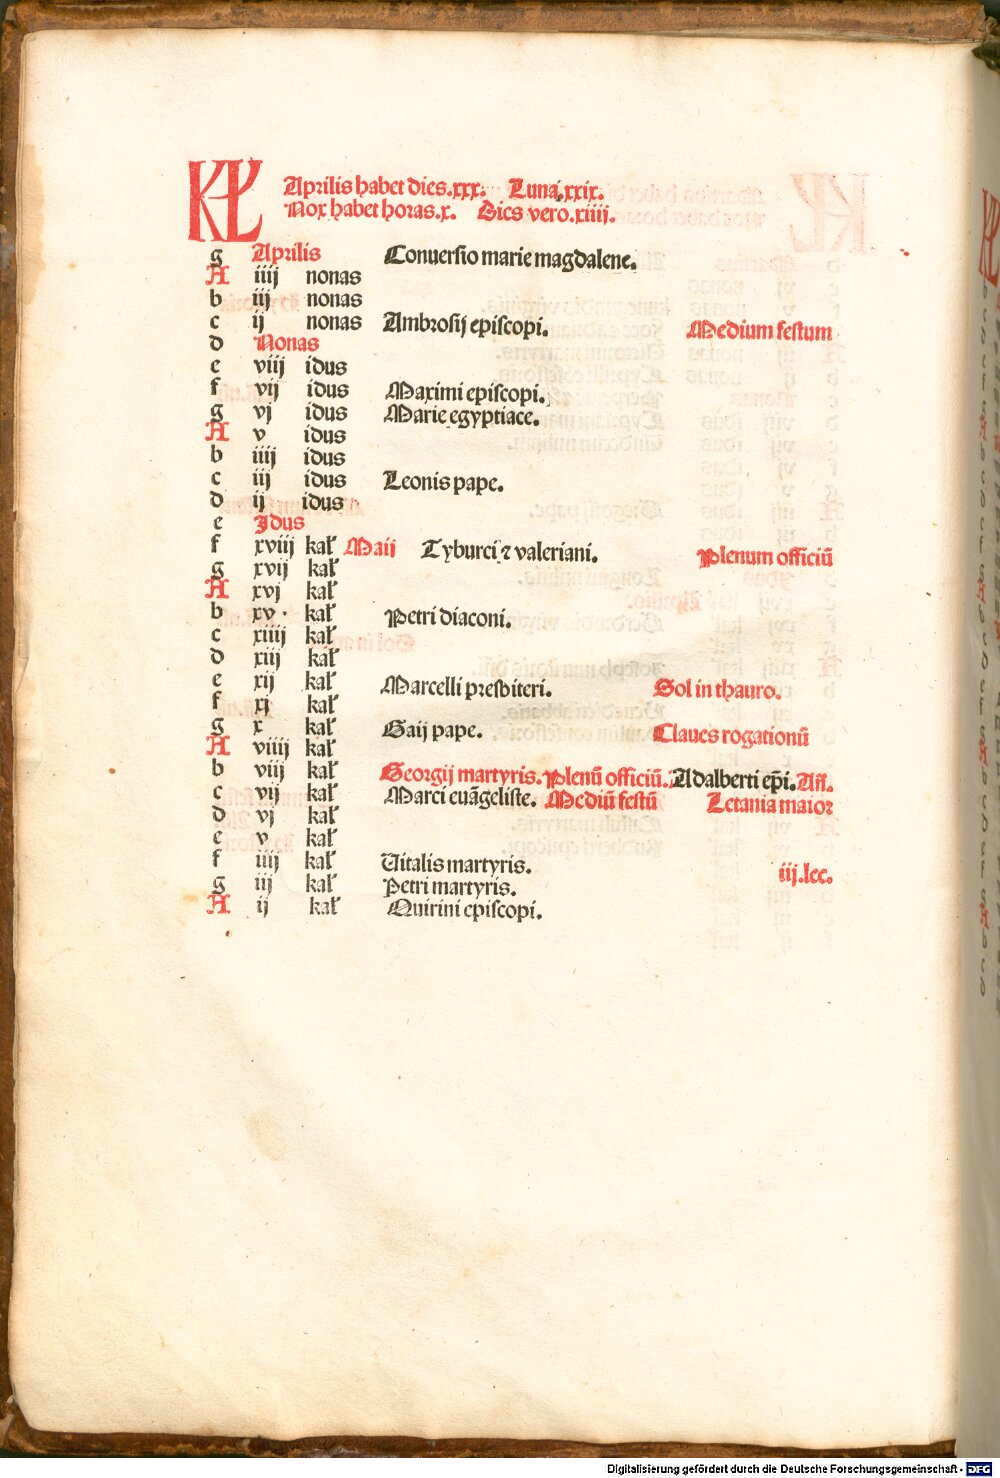 KL Aprilis habet dies.xxx. Luna.xxix.
Nox habet horas.x. Dies vero.xiiij.
g Aprilis Conuersio marie magdalene.
A iiij nonas
b iij nonas
c ij nonas Ambrosij episcopi. Medium festum
d Nonas
e viij idus
f vij idus Maximi episcopi.
g vj idus Marie egyptiace.
A v idus
b iiij idus
c iij idus Leonis pape.
d ij idus
e Jdus
f xviij kał Maij Tyburci ⁊ valeriani. Plenum officiū
g xvij kał
A xvj kał
b xv kał Petri diaconi.
c xiiij kał
d xiij kał
e xij kał Marcelli presbiteri. Sol in thauro.
f xj kał
g x kał Gaij pape. Claues rogationū
A viiij kał
b viij kał Georgij martyris. Plenū officiū. Adalberti ep̄i. Aff.
c vij kał Marci euāgeliste. Mediū festū Letania maior
d vj kał
e v kał
f iiij kał Uitalis martyris. iij.lec.
g iij kał Petri martyris.
A ij kał Quirini episcopi.
Digitalisierung gefördert durch die Deutsche Forschungsgemeinschaft - DFG